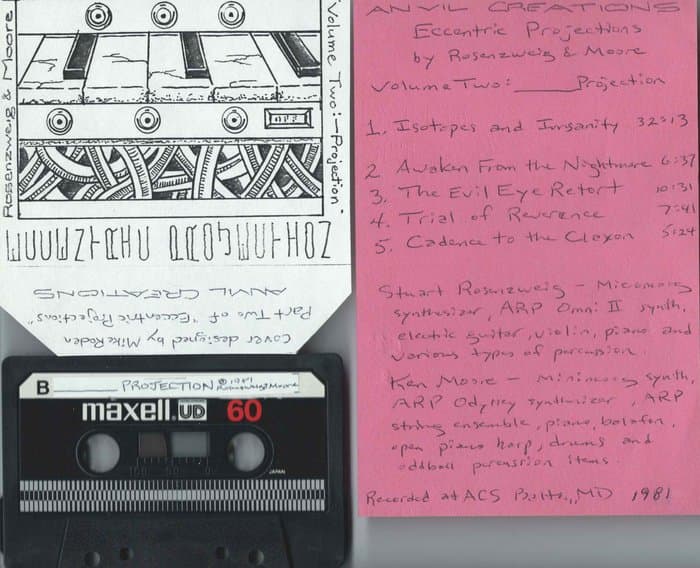 Rosenzweig & Moore
Volume Two:—Projection"
OFF
Cover designed by Mike Roden
Part Two of "Eccentric Projections"
ANVIL CREATIONS
B
______PROJECTION © 1981 Rosenzweig & Moore
maxell. UD 60
JAPAN
ANVIL CREATIONS
Eccentric Projections
by Rosenzweig & Moore
Volume Two: ______Projection
1. Isotopes and Irrsanity 32:13
2. Awaken From the Nightmare 6:37
3. The Evil Eye Retort 10:31
4. Trial of Reverence 7:41
5. Cadence to the Claxon 5:24
Stuart Rosenzweig - Micromoog
synthesizer, ARP Omni II synth,
electric guitar, violin, piano and
various types of percussion.
Ken Moore - Minimoog synth,
ARP Odyssey synthesizer, ARP
string ensemble, piano, balafon,
open piano harp, drums and
oddball percussion items.
Recorded at ACS MD 1981